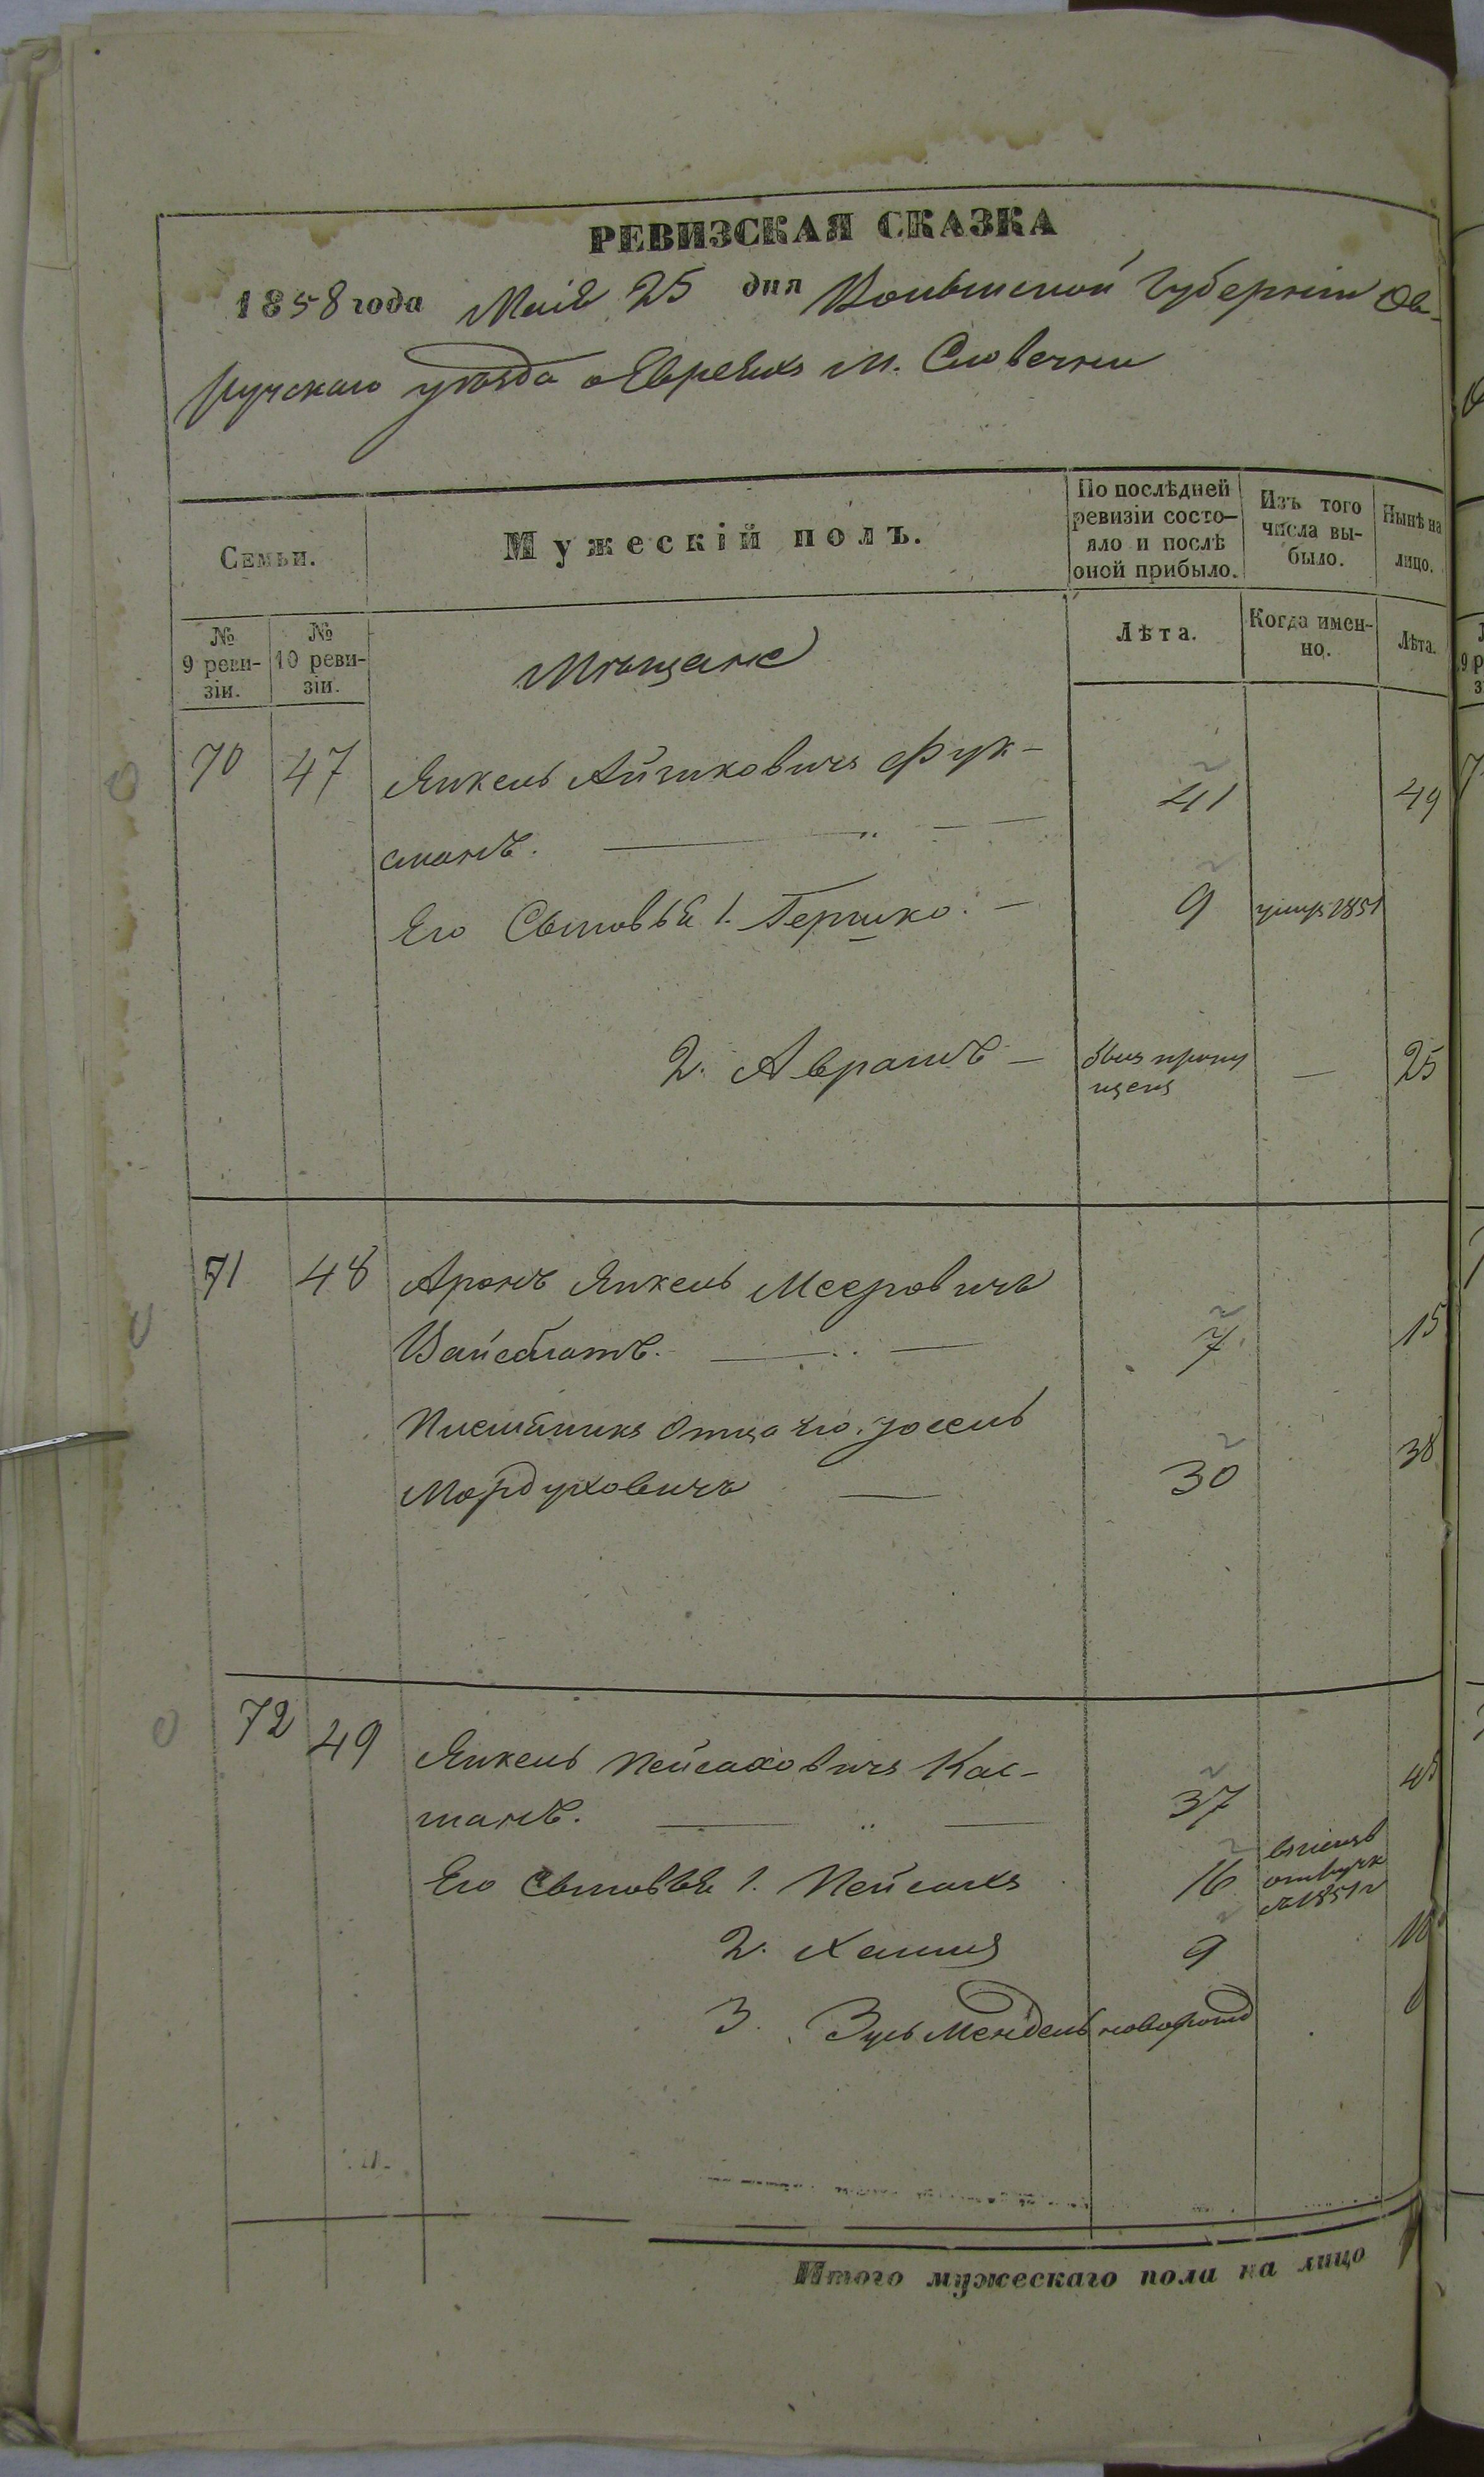 РЕВИЗСКАЯ СКАЗКА
1858 года Маія 25 дня Волынской Губерніи Ов-
ручскаго уѣзда о Евреяхъ м. Словечни
Семьи.
Мужескій полъ.
По послѣдней
ревизіи состо-
яло и послѣ
оной прибыло.
Изъ того
числа вы-
было.
Нынѣ на
лицо.
№
9 реви-
зіи.
№
10 реви-
зіи.
Мѣщане
Лѣта.
Когда имен-
но.
Лѣта.
70 47 Янкель Айзиковичъ Фук-
сманъ. 41 49
Его Сыновья 1. Гершко. 9 умеръ 1851
2. Аврамъ былъ пропу
щенъ — 25
71 48 Аронъ Янкель Мееровичъ
Вайсблатъ. 7 15
Племяникъ Отца его Іосель
Мордуховичъ 30 38
72 49 Янкель Пейсаховичъ Кас-
манъ. 37 45
Его Сыновья 1. Пейсахъ 16
1851
2. Хаимъ 9
3. Зусь Мендель новорожд
Итого мужескаго пола на лицо